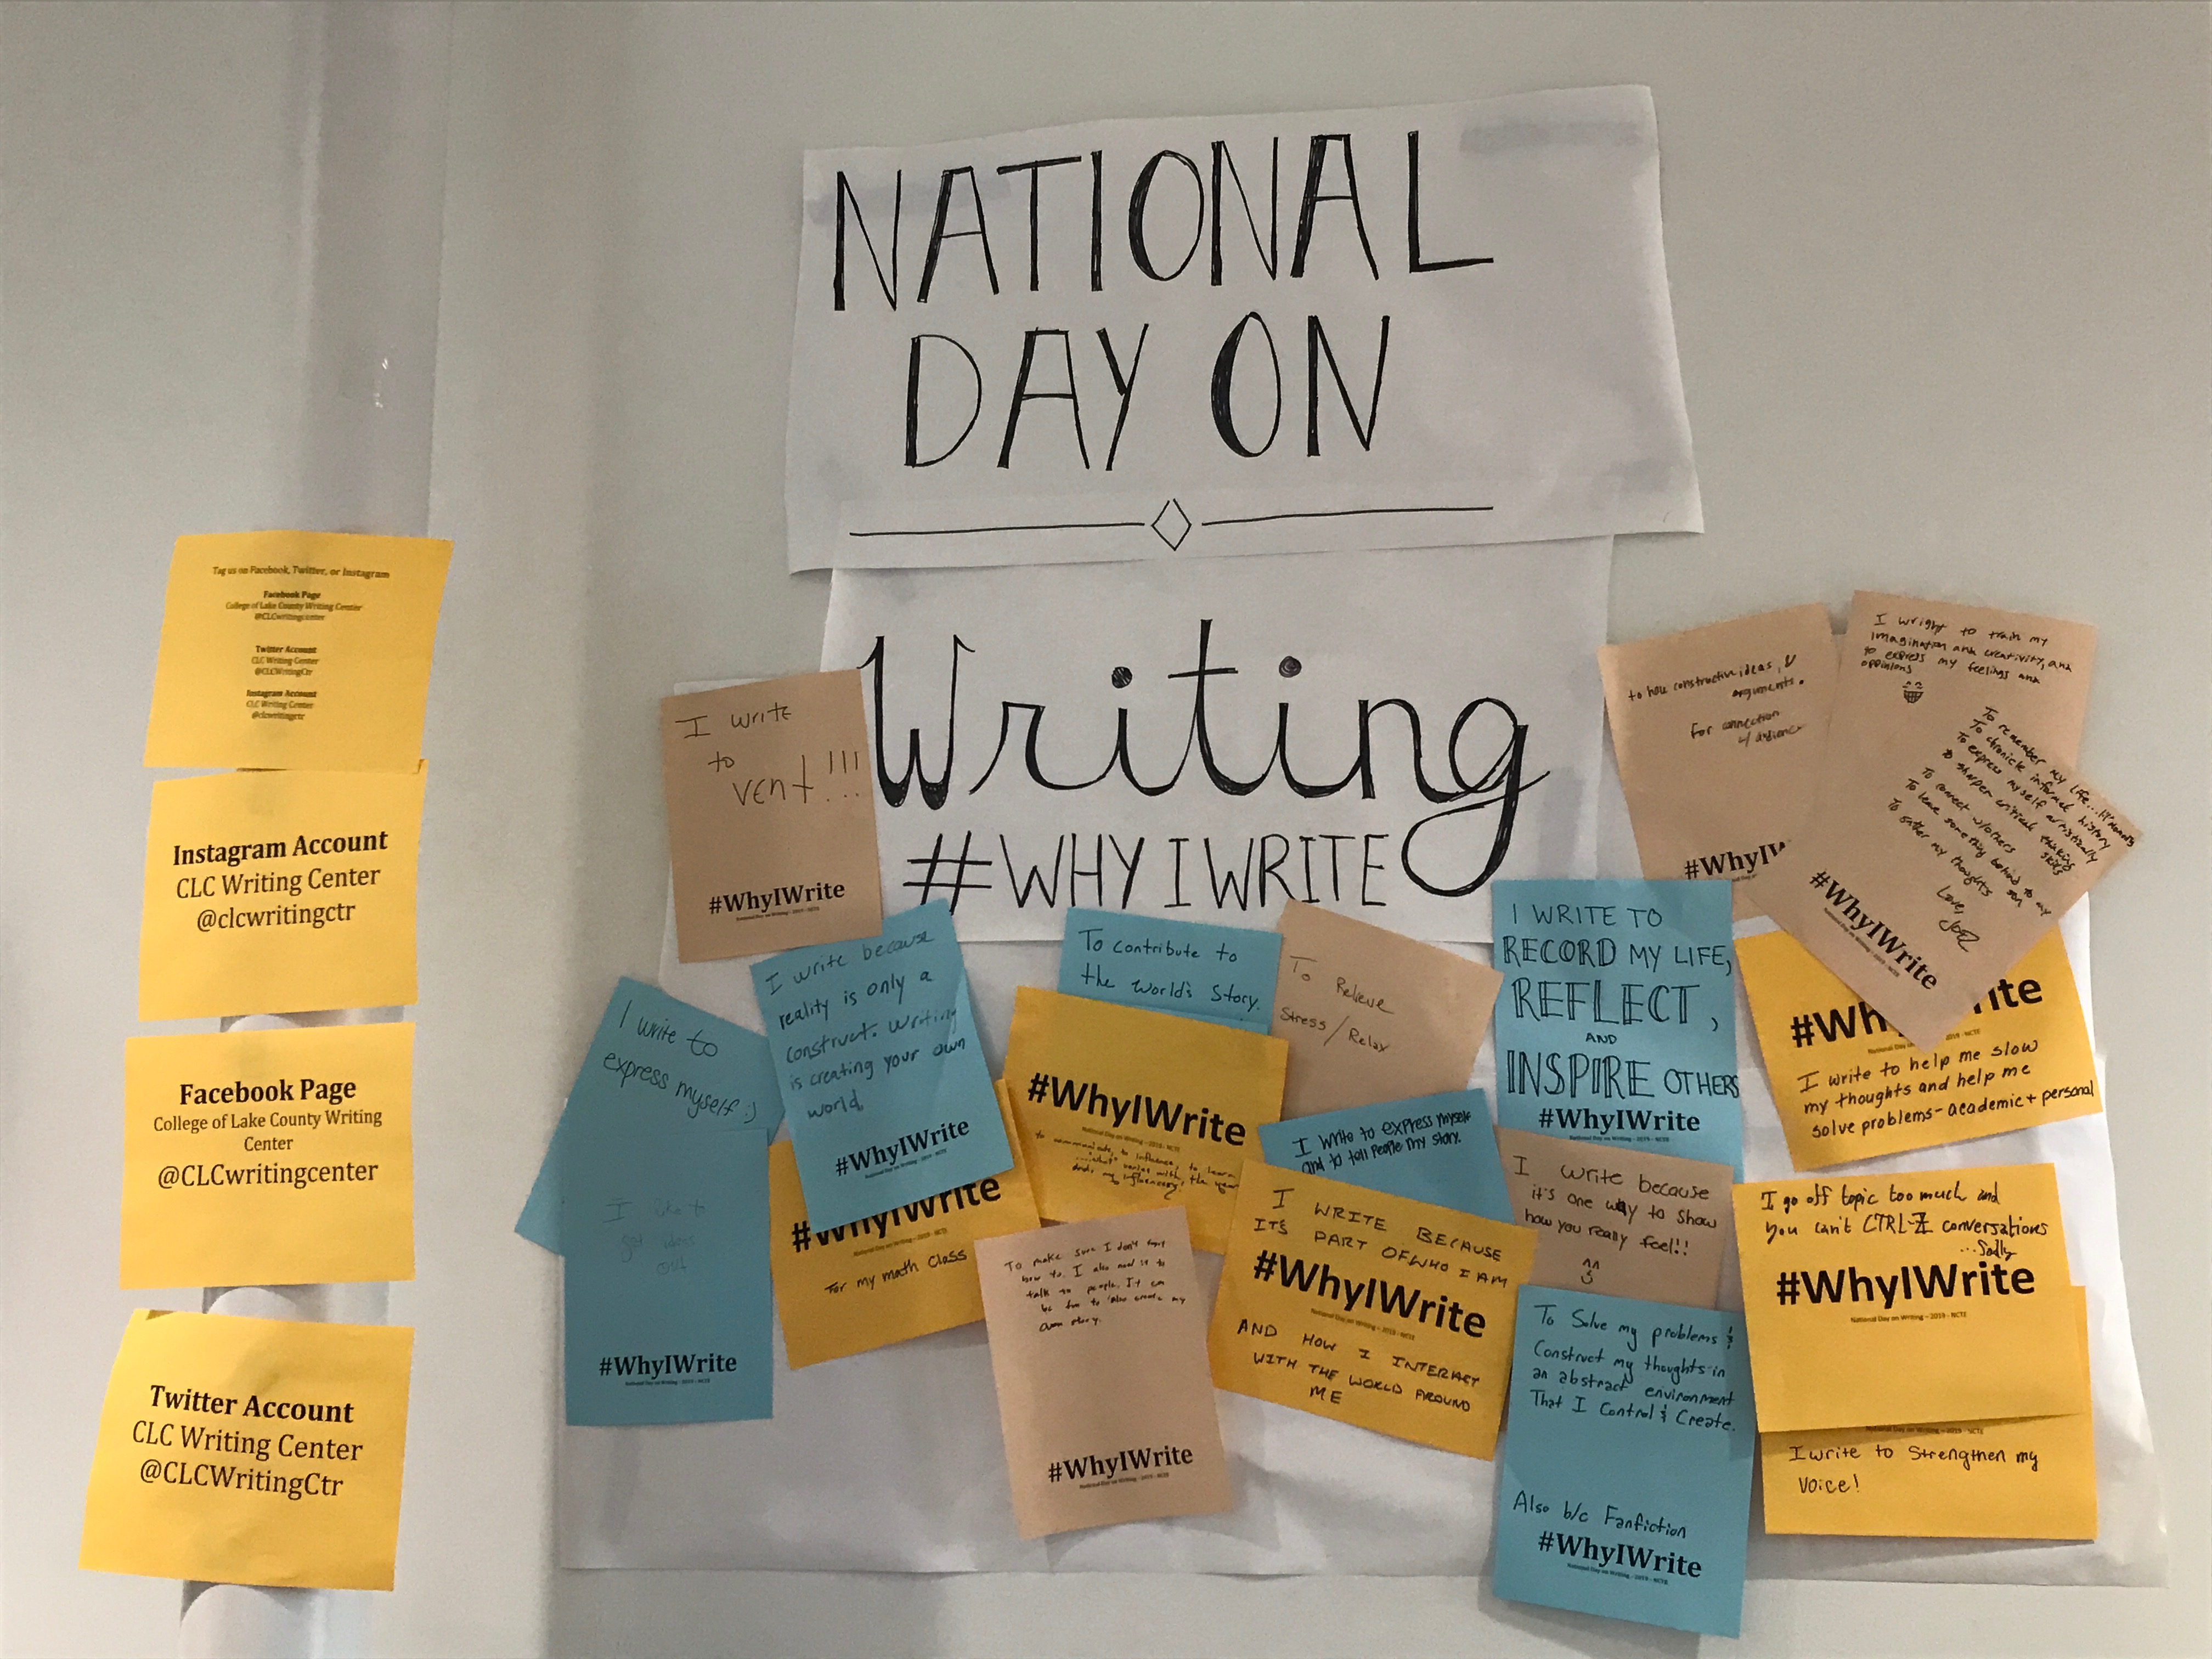 NATIONAL
DAY ON
Writing
#WHY I WRITE
Tag us on Facebook, Twitter, or Instagram
Facebook Page
College of Lake County Writing Center
@CLCwritingcenter
Twitter Account
CLC Writing Center
@CLCWritingCtr
Instagram Account
CLC Writing Center
@clcwritingctr
Instagram Account
CLC Writing Center
@clcwritingctr
Facebook Page
College of Lake County Writing
Center
@CLCwritingcenter
Twitter Account
CLC Writing Center
@CLCWritingCtr
I write
to
vent!!!
#WhyIWrite
National Day on Writing - 2019 - NCTE
I write to
express myself :)
I like to
get ideas
out
#WhyIWrite
National Day on Writing - 2019 - NCTE
I write because
reality is only a
construct. Writing
is creating your own
world.
#WhyIWrite
National Day on Writing - 2019 - NCTE
#WhyIWrite
For my math class
To contribute to
the world's story.
#WhyIWrite
National Day on Writing - 2019 - NCTE
to communicate, to influence, to learn
To Relieve
Stress/Relax
I write to express myself
and to tell people my story.
To make sure I don't forget
how to. I also need it to
talk to people. It can
be fun to also create my
own story.
#WhyIWrite
National Day on Writing - 2019 - NCTE
I WRITE BECAUSE
IT'S PART OF WHO I AM
#WhyIWrite
National Day on Writing - 2019 - NCTE
AND HOW I INTERACT
WITH THE WORLD AROUND
ME
I WRITE TO
RECORD MY LIFE,
REFLECT,
AND
INSPIRE OTHERS
#WhyIWrite
National Day on Writing - 2019 - NCTE
I write because
it's one way to show
how you really feel!!
To Solve my problems &
Construct my thoughts in
an abstract environment
That I Control & Create.
Also b/c Fanfiction
#WhyIWrite
National Day on Writing - 2019 - NCTE
to have constructive ideas, &
arguments.
For connection
w/ audience
#WhyIW
I wright to train my
imagination and creativity, and
to express my feelings and
oppinions
To remember my life...
To chronicle informal history
To express myself artistically
To sharpen critical thinking skills
To connect w/others
To leave something behind to my son
To gather my thoughts
Love,
Joel
#WhyIWrite
#WhyIWrite
I write to help me slow
my thoughts and help me
solve problems - academic + personal
I go off topic too much and
you can't CTRL-Z conversations
...Sadly
#WhyIWrite
National Day on Writing - 2019 - NCTE
I write to Strengthen my
Voice!